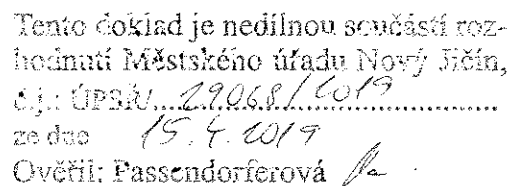 Tento doklad je nedílnou součástí roz-
hodnutí Městského úřadu Nový Jičín,
č.j.: ÚPSŘ/.....29068/2019.....
ze dne 15.4.2019
Ověřil: Passendorferová